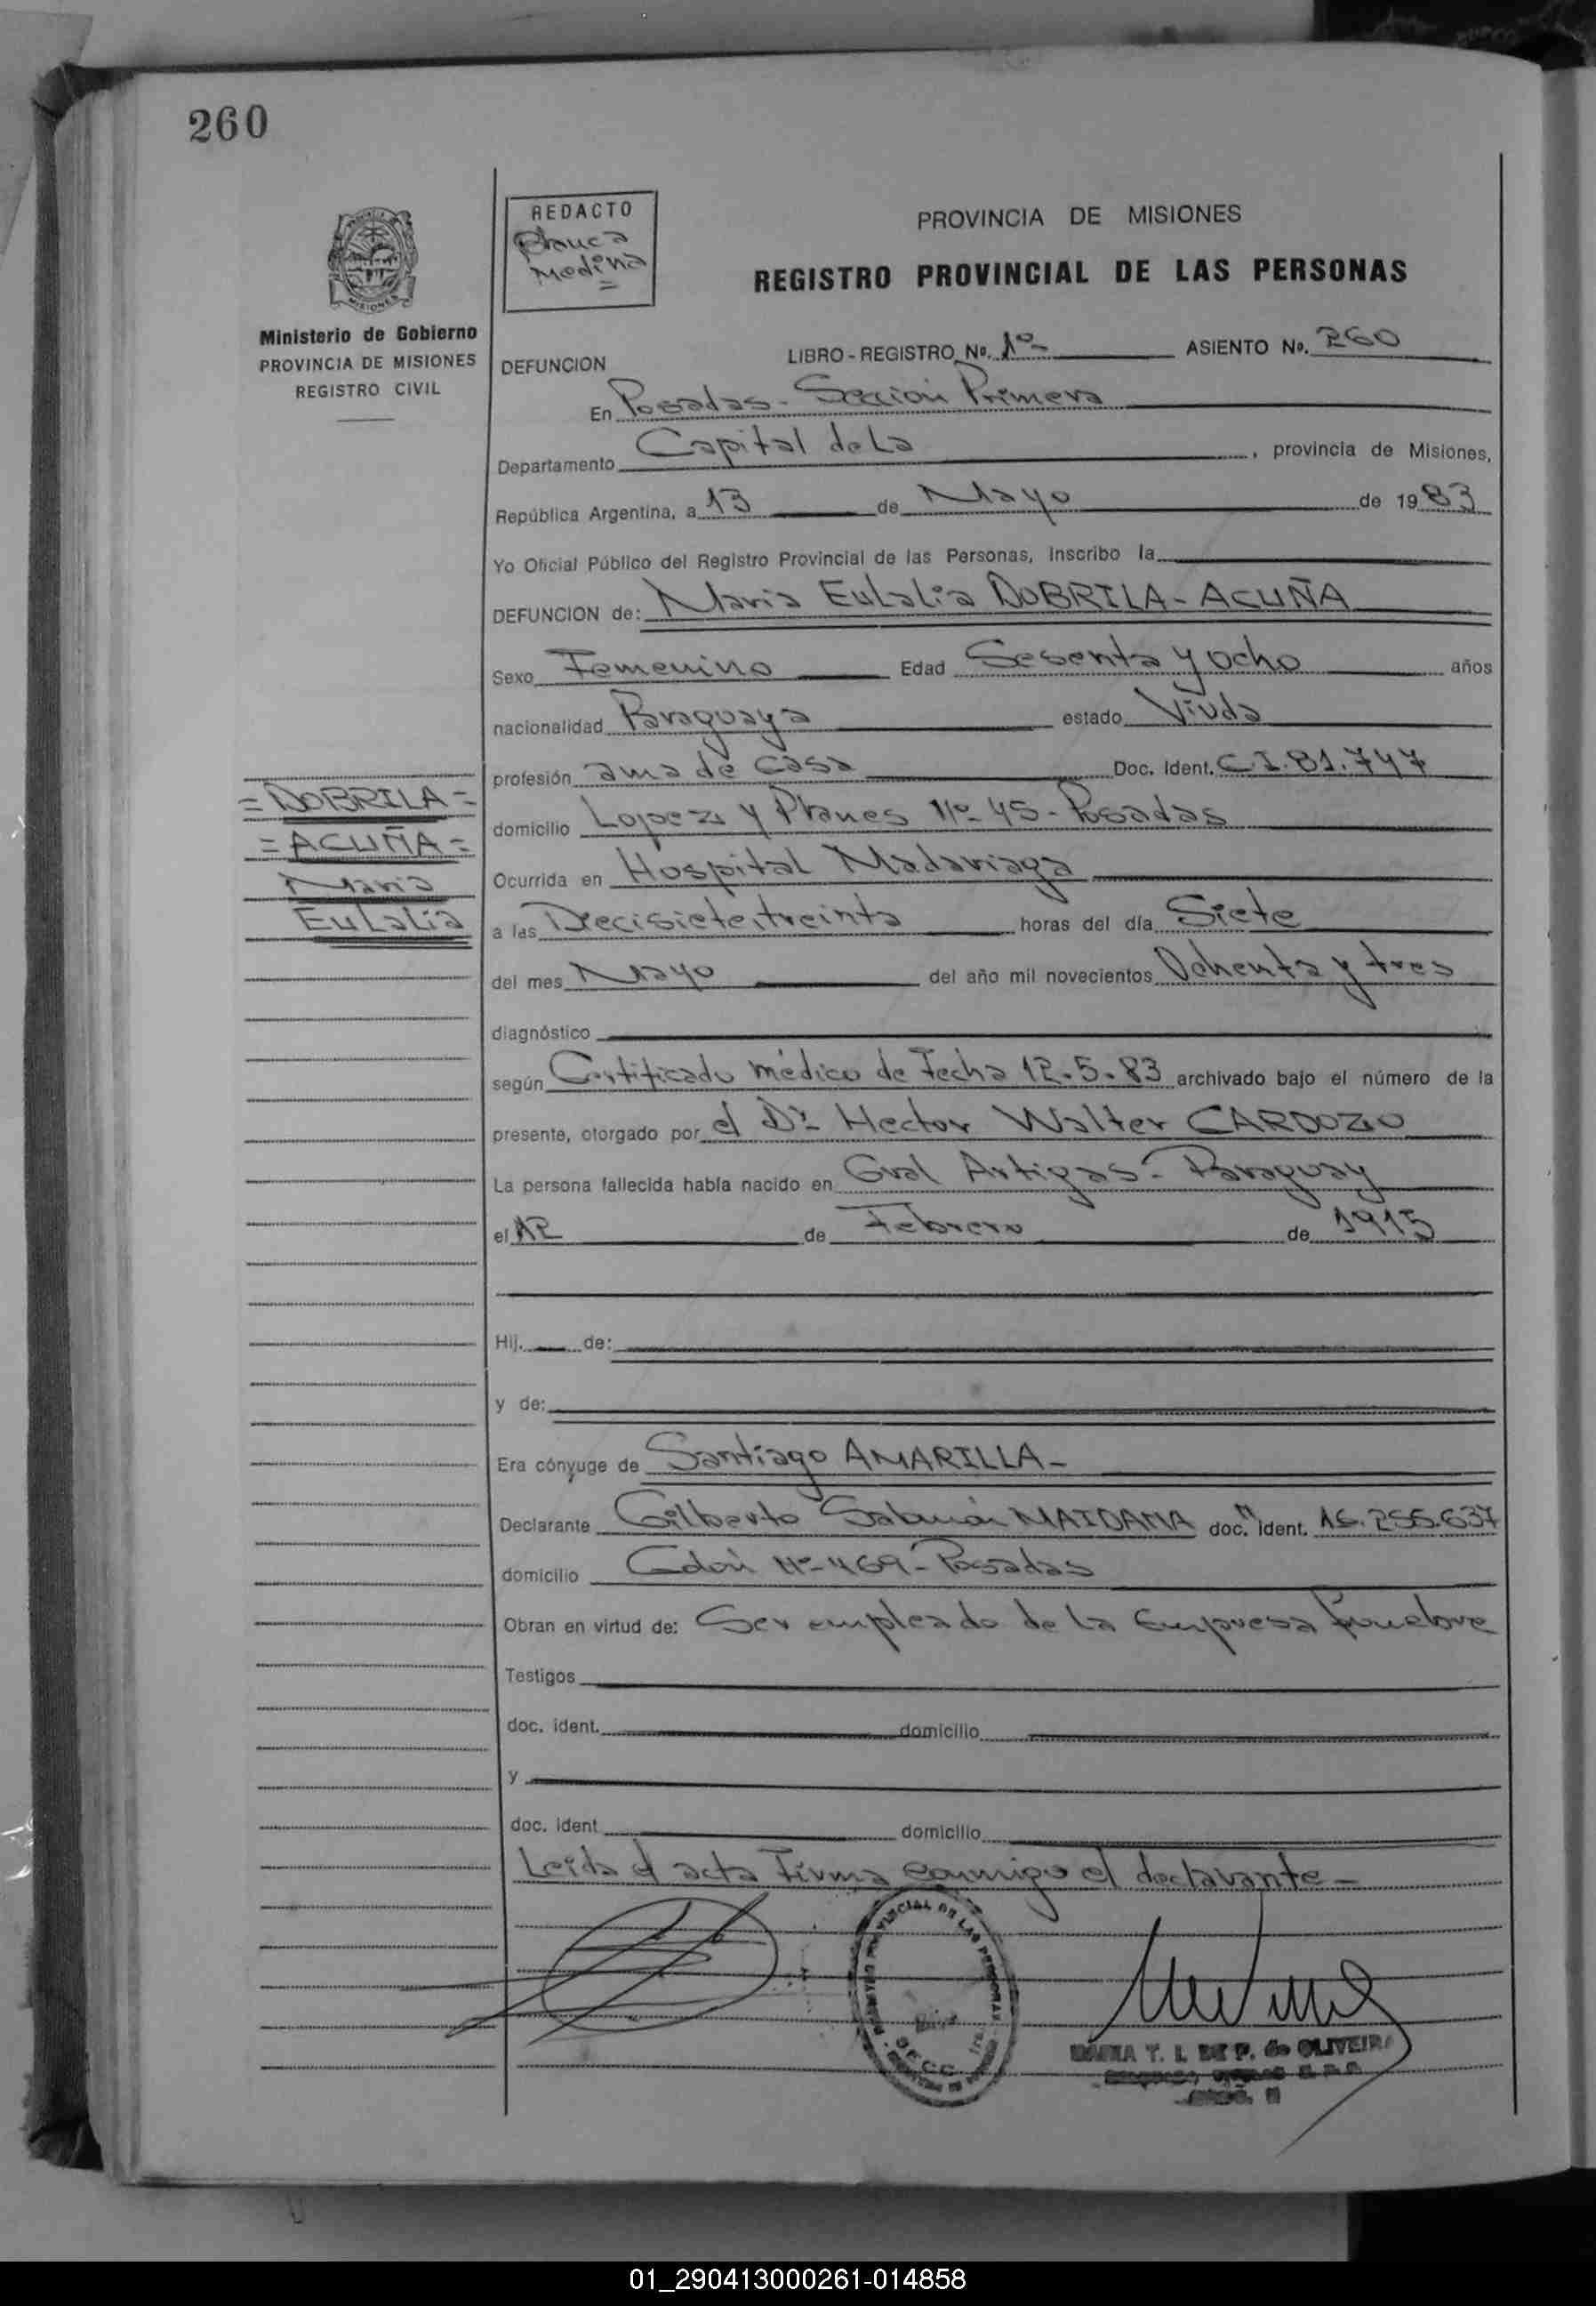 260
REDACTO
Blanca
Medina
=
PROVINCIA DE MISIONES
REGISTRO PROVINCIAL DE LAS PERSONAS
MISIONES
Ministerio de Gobierno
PROVINCIA DE MISIONES
REGISTRO CIVIL
DEFUNCION
LIBRO - REGISTRO Nº. 1º- ASIENTO Nº. 260
En Posadas - Sección Primera
Departamento Capital de La , provincia de Misiones,
República Argentina, a 13 de Mayo de 1983
Yo Oficial Público del Registro Provincial de las Personas, inscribo la
DEFUNCION de: Maria Eulalia DOBRILA - ACUÑA
Sexo Femenino Edad Sesenta y ocho años
nacionalidad Paraguaya estado Viuda
profesión ama de casa Doc. Ident. C.I. 81.747
= DOBRILA =
domicilio Lopez y Planes Nº 45 - Posadas
= ACUÑA =
Ocurrida en Hospital Madariaga
Maria
Eulalia
a las Diecisiete, treinta horas del día Siete
del mes Mayo del año mil novecientos Ochenta y tres
diagnóstico
según Certificado médico de Fecha 12.5.83 archivado bajo el número de la
presente, otorgado por el Dr. Hector Walter CARDOZO
La persona fallecida había nacido en Gral Artigas - Paraguay
el 12 de Febrero de 1915
Hij. de:
y de:
Era cónyuge de Santiago AMARILLA -
Declarante Gilberto MAIDANA doc. ident. 16.255.637
domicilio Nº 469 - Posadas
Obran en virtud de: Ser empleado de la Empresa Funebre
Testigos
doc. ident. domicilio
y
doc. ident domicilio
Leida el acta Firma conmigo el declarante -
T. I. DE P. de OLIVEIRA
01_290413000261-014858